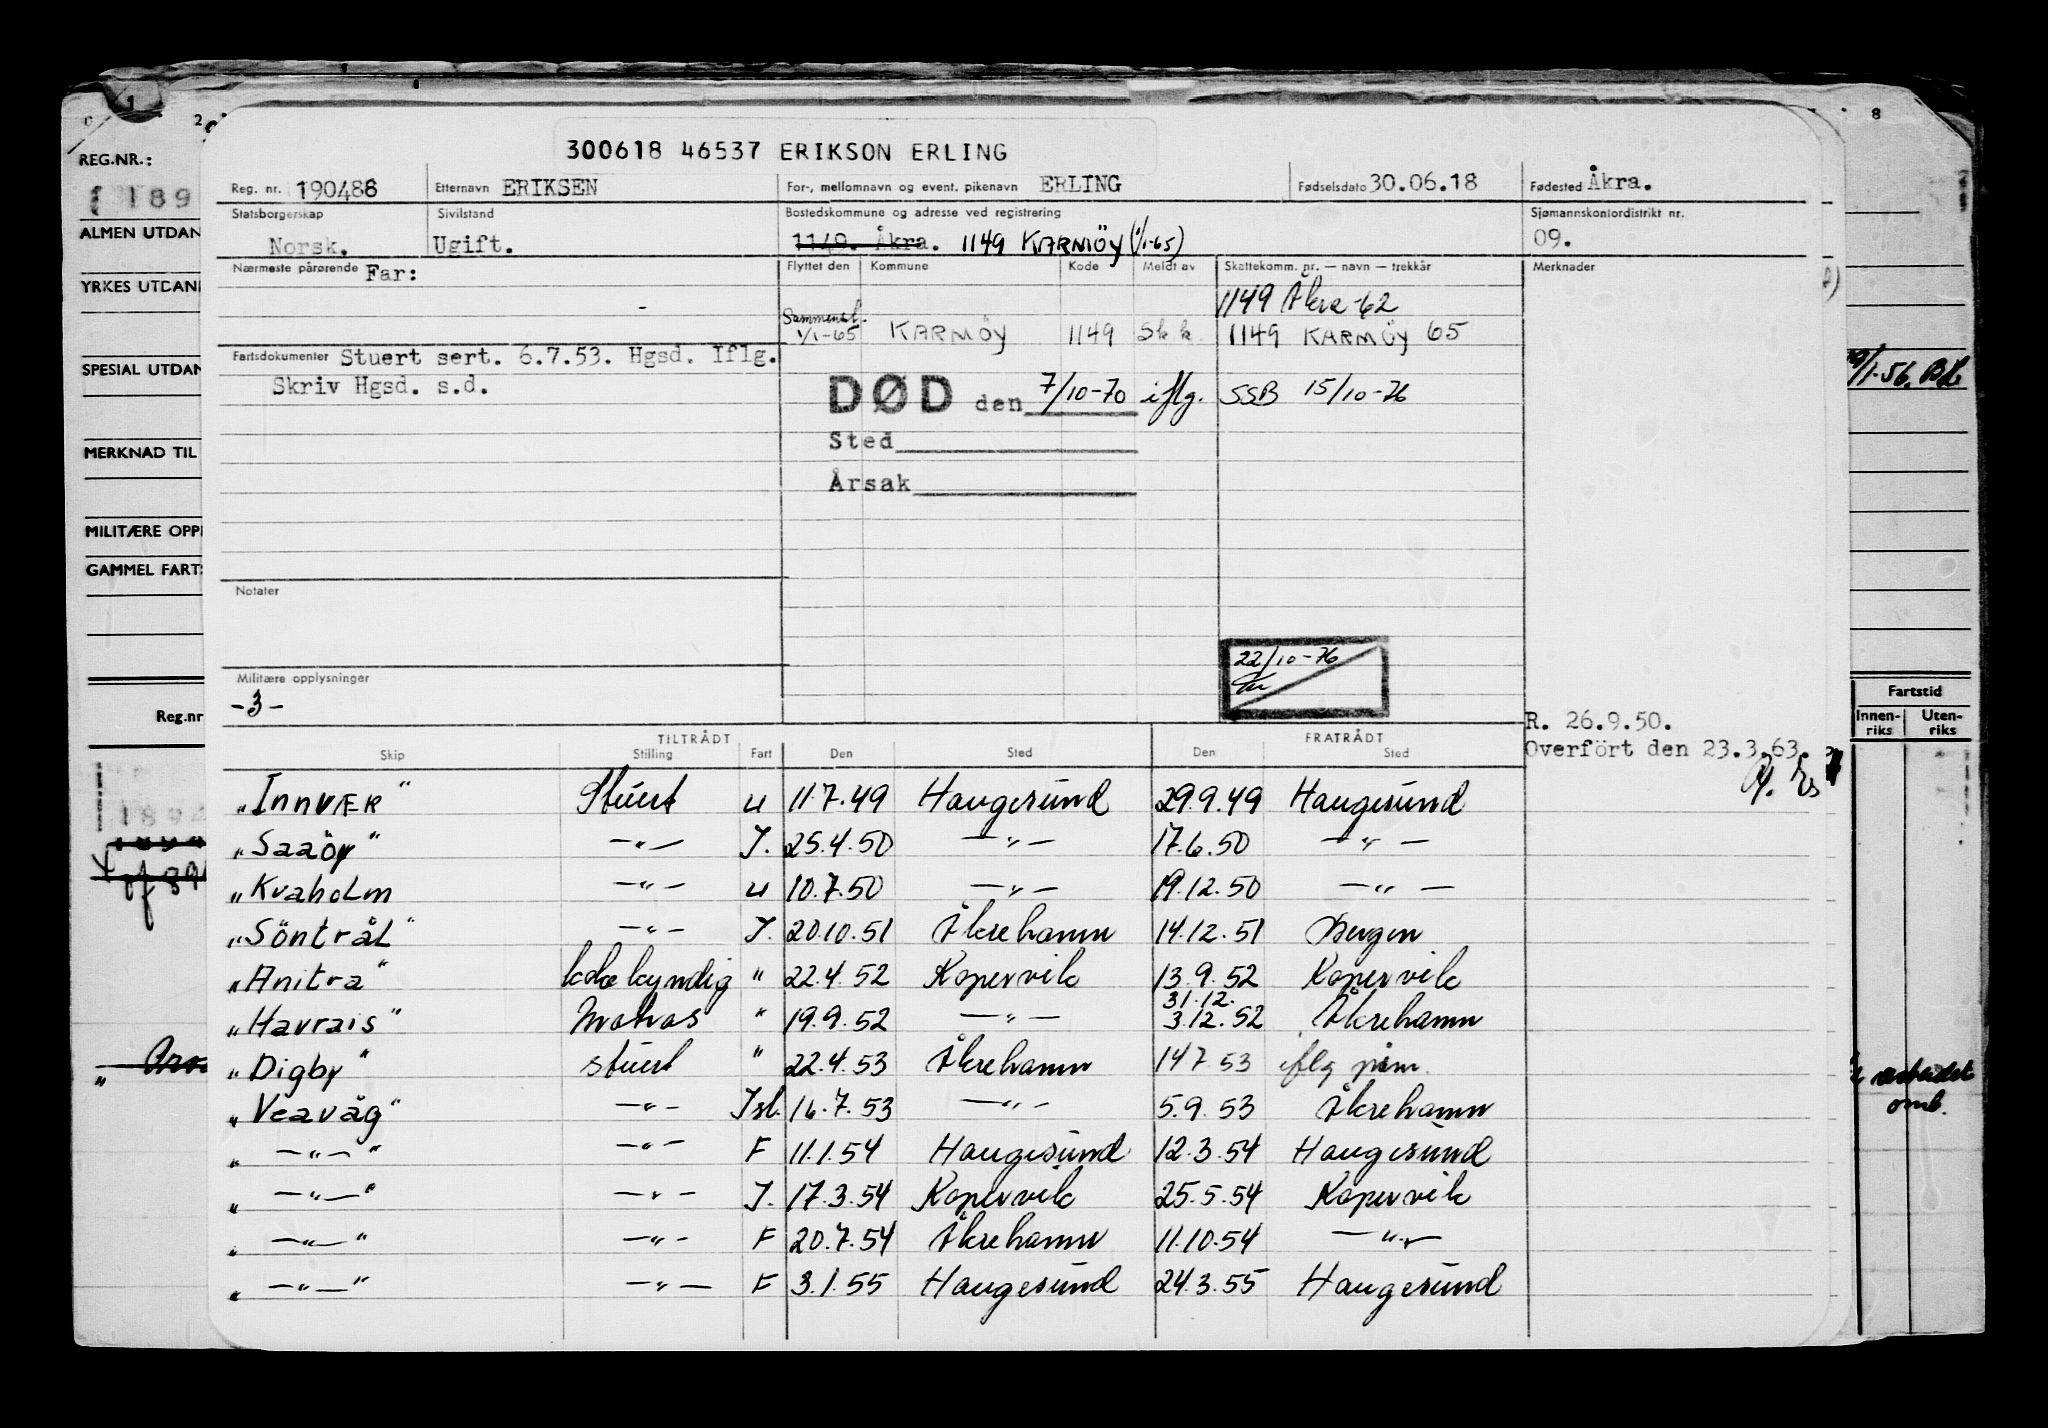 1 2 8
300618 46537 ERIKSON ERLING
REG.NR.:
189
Reg. nr. 190488 Etternavn ERIKSEN For-, mellomnavn og event. pikenavn ERLING Fødselsdato 30.06.18 Fødested Åkra.
ALMEN UTDAN
Statsborgerskap Sivilstand Bostedskommune og adresse ved registrering Sjømannskontordistrikt nr.
Norsk. Ugift. 1149. Åkra. 1149 KARMÖY (1/1-65) 09.
Nærmeste pårørende Far: Flyttet den Kommune Kode Meldt av Skattekomm. nr. — navn — trekkår Merknader
YRKES UTDAN
1149 Åkra -62
Sammensl.
1/1-65 KARMÖY 1149 Skk 1149 KARMÖY 65
Fartsdokumenter Stuert sert. 6.7.53. Hgsd. Iflg.
SPESIAL UTDAN
Skriv Hgsd. s.d.
/1-56.
DØD den 7/10-70 iflg. SSB 15/10-76
Sted
MERKNAD TIL
Årsak
MILITÆRE OPPL
GAMMEL FARTS
Notater
22/10-76
Militære opplysninger
-3-
Fartstid
Innen-riks Uten-riks
Reg.nr
R. 26.9.50.
Overfört den 23.3.63.
TILTRÅDT FRATRÅDT
Skip Stilling Fart Den Sted Den Sted
"INNVÆR" Stuert u 11.7.49 Haugesund 29.9.49 Haugesund
"Saaöy" —"— I. 25.4.50 —"— 17.6.50 —"—
"Kvaholm —"— u 10.7.50 —"— 19.12.50 —"—
"Söntrål" —"— I. 20.10.51 Åkrehamn 14.12.51 Bergen
"Anitra" kokekyndig " 22.4.52 Kopervik 13.9.52 Kopervik
31.12.
"Havrais" Matros " 19.9.52 —"— 3.12.52 Åkrehamn
"Digby" stuert " 22.4.53 Åkrehamn 14.7.53 iflg påm.
"Veavåg" —"— Isl. 16.7.53 —"— 5.9.53 Åkrehamn
arbeidet
omb.
" —"—" —"— F 11.1.54 Haugesund 12.3.54 Haugesund
" —"—" —"— I. 17.3.54 Kopervik 25.5.54 Kopervik
" —"—" —"— F 20.7.54 Åkrehamn 11.10.54 —"—
" —"—" —"— F 3.1.55 Haugesund 24.3.55 Haugesund